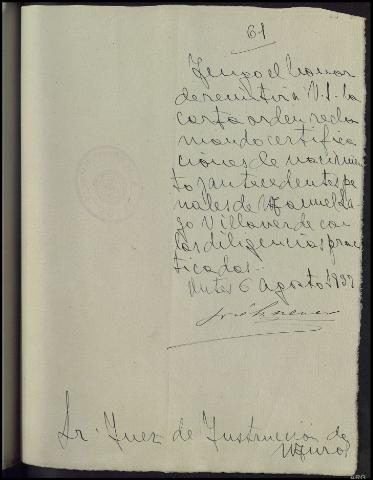 61
Tengo el honor
de remitir a V.S. la
carta orden recla
mando certifica
ciones de nacimien
to y antecedentes pe
nales de Manuel La
go Villaverde con
las diligencias prac
ticadas.
Outes 6 Agosto 1937
José
Sr. Juez de Instrucción de
Muros
ARG